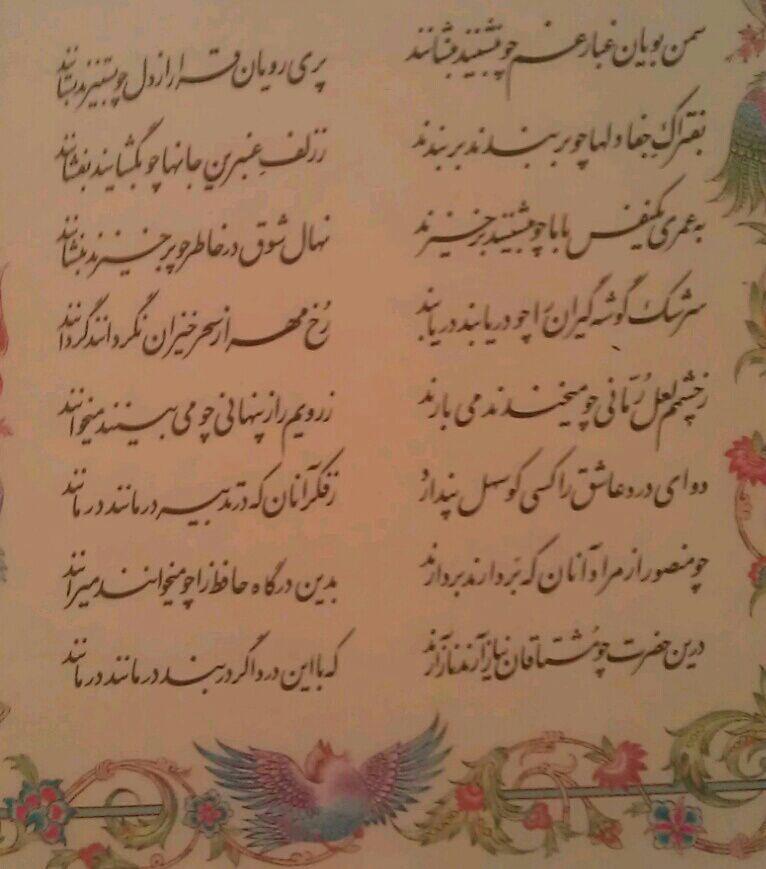 سمن بویان غبار غم چو بنشینند بنشانند
پری رویان قرار از دل چو بستیزند بستانند
بفتراک جفا دلها چو بربندند بربندند
ز زلف عنبرین جانها چو بگشایند بفشانند
به عمری یکنفس با ما چو بنشینند برخیزند
نهال شوق در خاطر چو برخیزند بنشانند
سرشک گوشه گیران را چو دریابند دریابند
رخ مهر از سحر خیزان نگردانند گردانند
ز چشمم لعل رُمّانی چو میخندند می بارند
ز رویم راز پنهانی چو می بینند میخوانند
دوای درد عاشق را کسی کو سهل پندارد
ز فکر آنان که در تدبیر درمانند در مانند
چو منصور از مراد آنان که بَردارند بردارند
بدین درگاه حافظ را چو میخوانند میرانند
درین حضرت چو مُشتاقان نیاز آرند ناز آرند
که با این درد اگر دربند درمانند درمانند